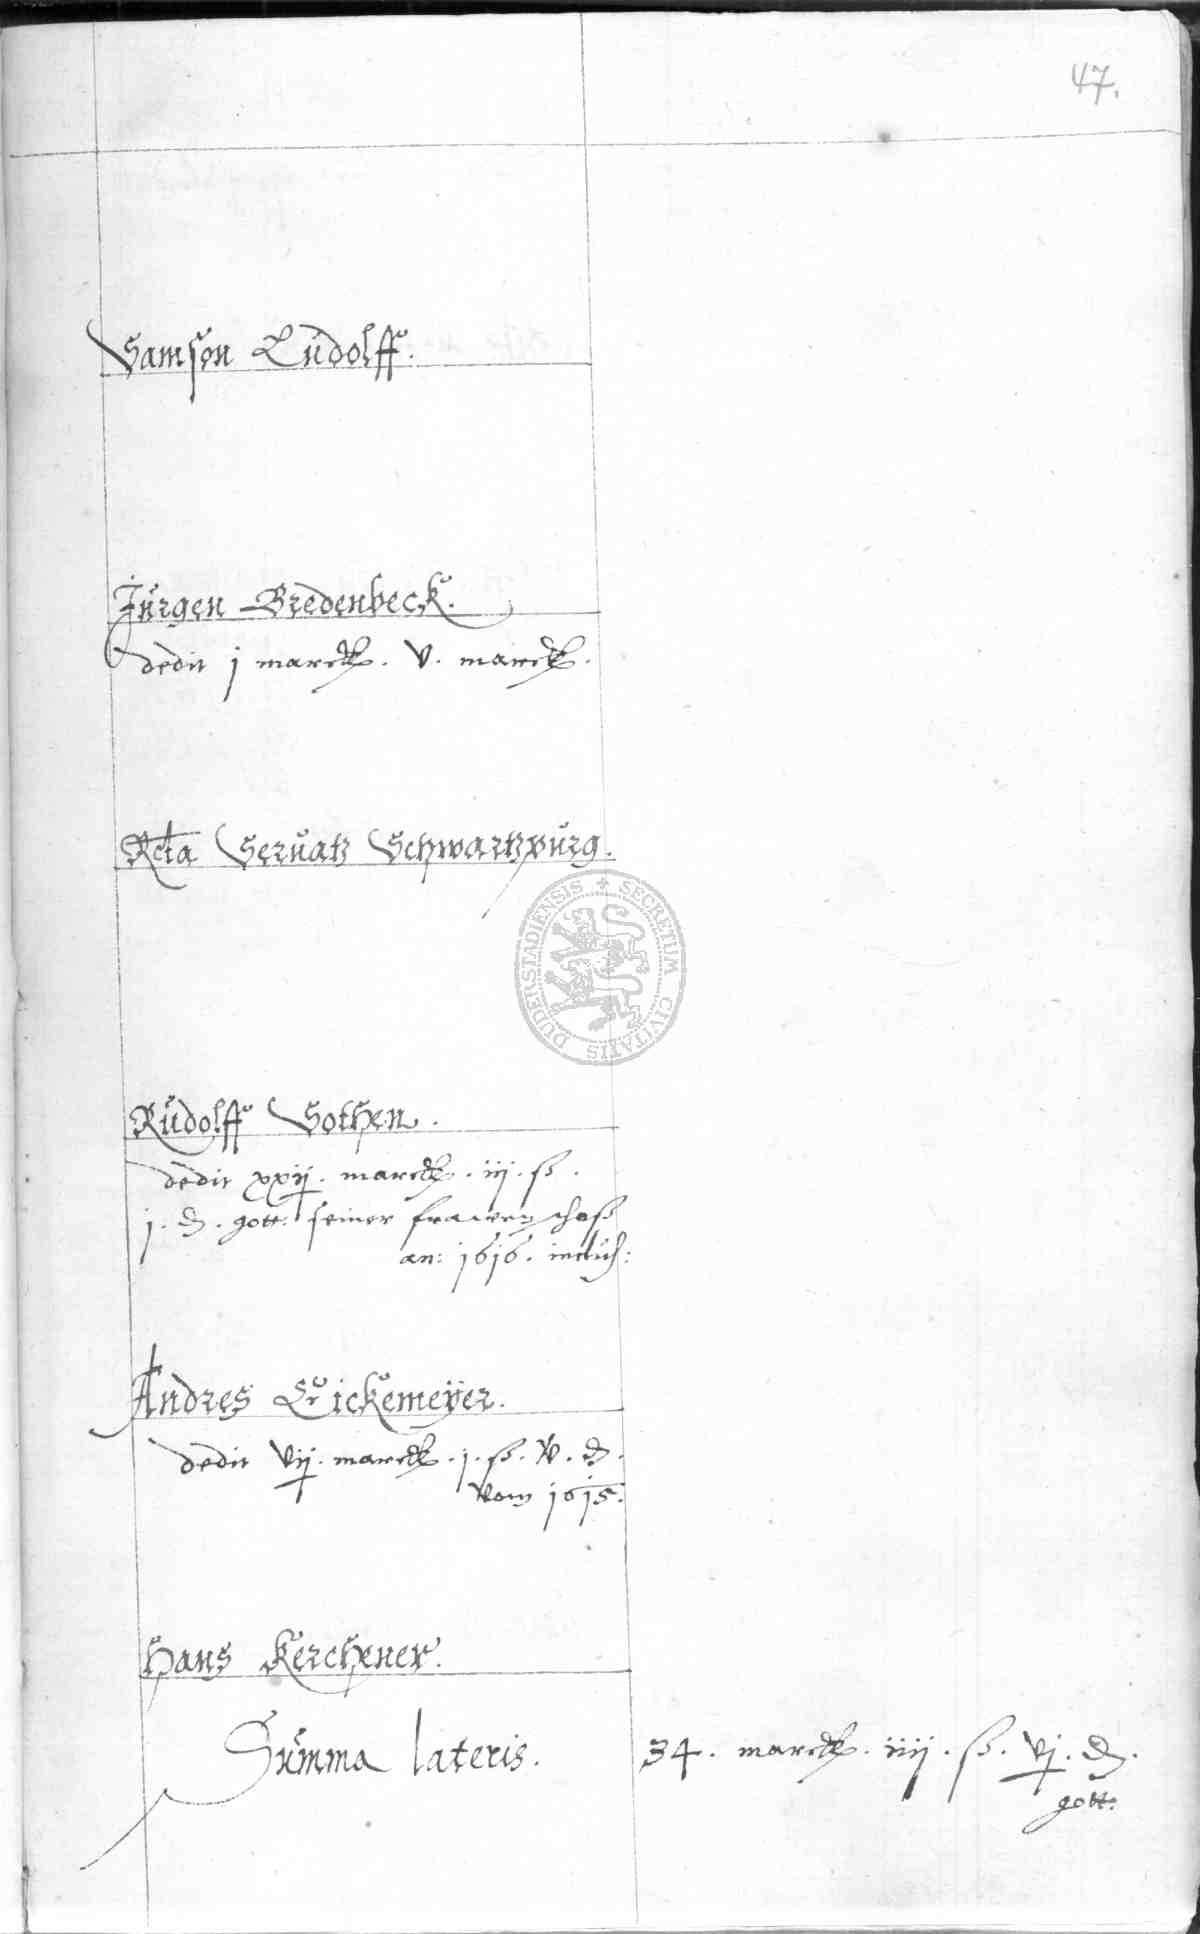 47.
Samson Ludolff.
Jurgen Bredenbeck.
dedit j marck. v. marck.
Rcta Servatz Schwartzburg.
SECRETUM CIVITATIS DUDERSTADIENSIS
Rudolff Sothen.
dedit xxij. marck. iij. ß.
j. d. gott. seiner frawen schoß
an: 1616. inclus:
Andres Eickemeÿer.
dedit vij. marck. j. ß. v. d.
vom 1615.
Hans Kerchener.
Summa lateris. 34. marck. iiij. ß. vj. d.
gott.